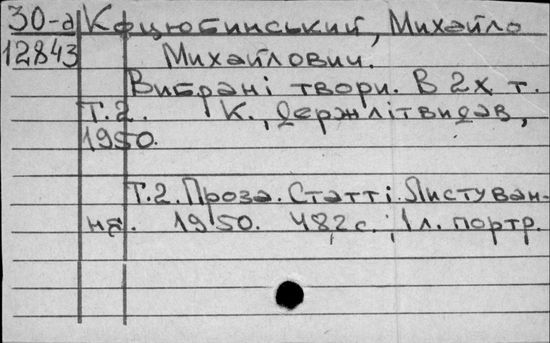 30-а Коцюбинський, Михайло
12843 Михайлович.
Вибрані твори. В 2х т.
Т.2. К., Держлітвидав,
1950.
Т.2. Проза. Статті. Листуван-
ня. 1950. 482 с.; 1 л. портр.